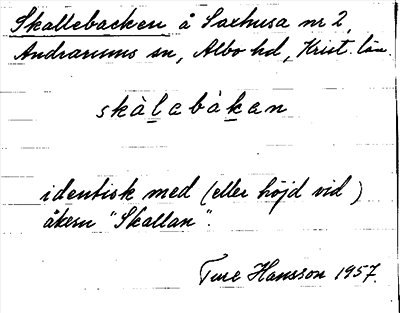 Skallebacken å Saxhusa nr 2
Andrarums sn, Albo hd, Krist. län.
skàlebàken
identisk med (eller höjd vid )
åkern "Skallan".
Ture Hansson 1957.